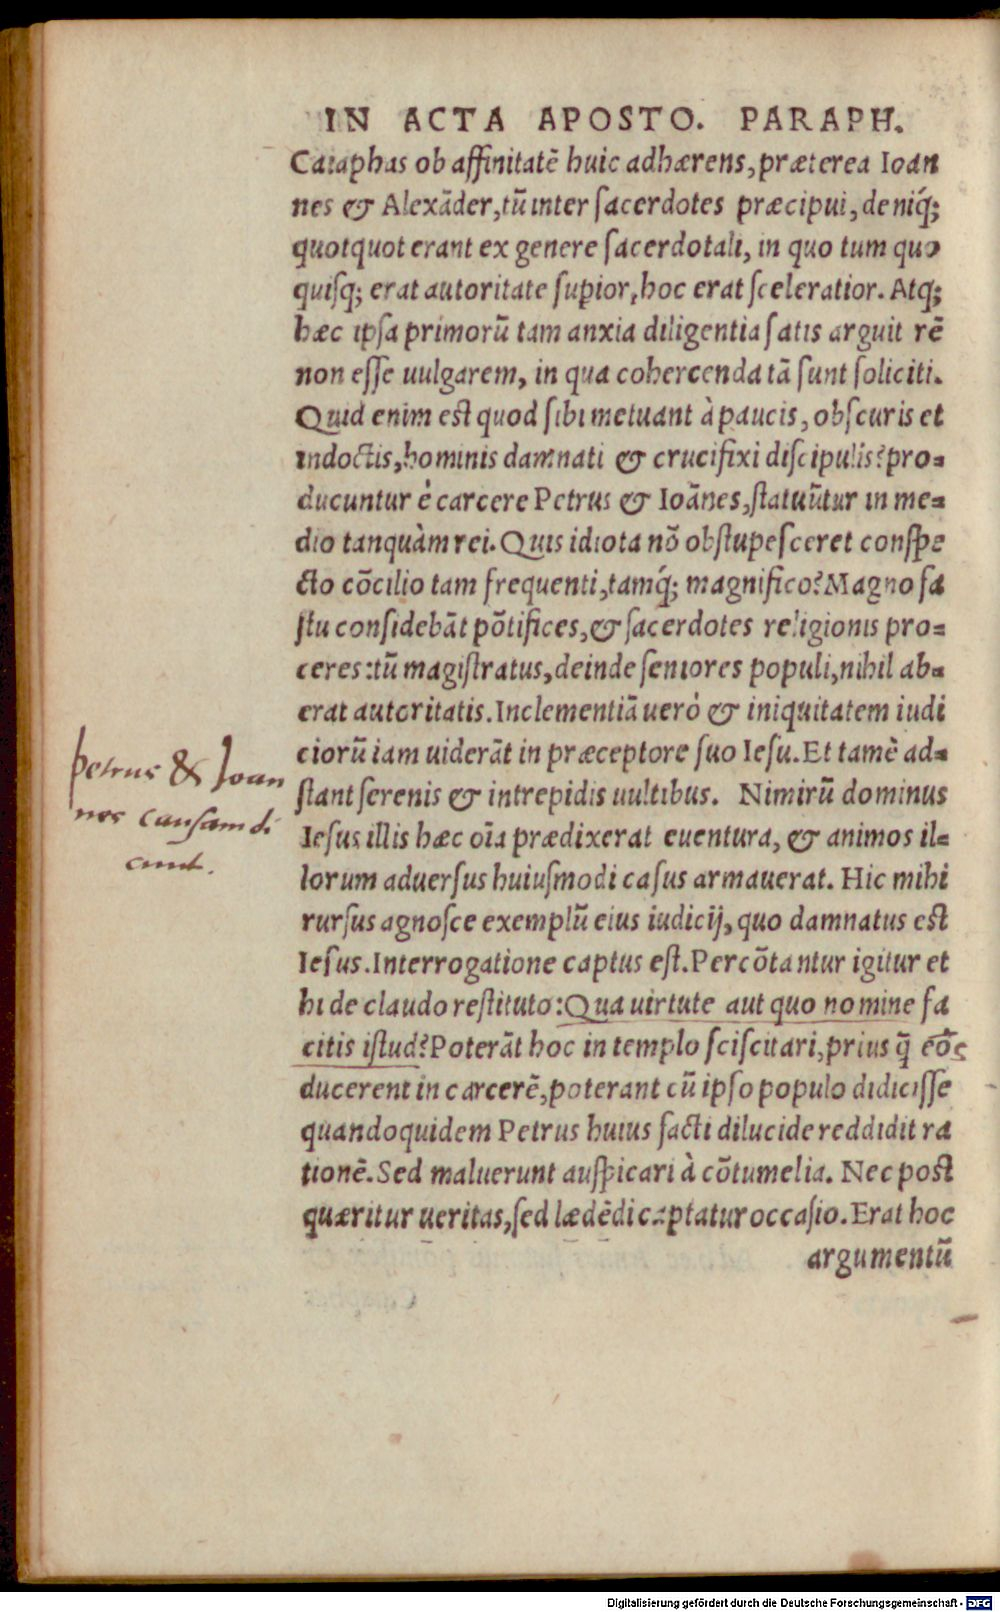 IN ACTA APOSTO. PARAPH.
Caiaphas ob affinitatē huic adhærens, præterea Ioan
nes & Alexāder, tū inter sacerdotes præcipui, deniq́;
quotquot erant ex genere sacerdotali, in quo tum quo
quisq; erat autoritate supior, hoc erat sceleratior. Atq;
hæc ipsa primorū tam anxia diligentia satis arguit rē
non esse uulgarem, in qua cohercenda tā sunt soliciti.
Quid enim est quod sibi metuant à paucis, obscuris et
indoctis, hominis damnati & crucifixi discipulis? pro-
ducuntur è carcere Petrus & Ioānes, statuūtur in me-
dio tanquàm rei. Quis idiota nō obstupesceret conspe
cto cōcilio tam frequenti, tamq́; magnifico? Magno fa
stu considebāt pōtifices, & sacerdotes religionis pro-
ceres: tū magistratus, deinde seniores populi, nihil ab-
erat autoritatis. Inclementiā uerò & iniquitatem iudi
ciorū iam uiderāt in præceptore suo Iesu. Et tamē ad-
stant serenis & intrepidis uultibus. Nimirū dominus
Iesus illis hæc oīa prædixerat euentura, & animos il-
lorum aduersus huiusmodi casus armauerat. Hic mihi
rursus agnosce exemplū eius iudicij, quo damnatus est
Iesus. Interrogatione captus est. Percōtantur igitur et
hi de claudo restituto: Qua uirtute aut quo nomine fa
citis istud? Poterāt hoc in templo sciscitari, prius q̄ eōs
ducerent in carcerē, poterant cū ipso populo didicisse
quandoquidem Petrus huius facti dilucide reddidit ra
tionē. Sed maluerunt auspicari à cōtumelia. Nec post
quæritur ueritas, sed lædēdi captatur occasio. Erat hoc
argumentū
petrus & Joan
nes causam di
cunt.
Digitalisierung gefördert durch die Deutsche Forschungsgemeinschaft - DFG